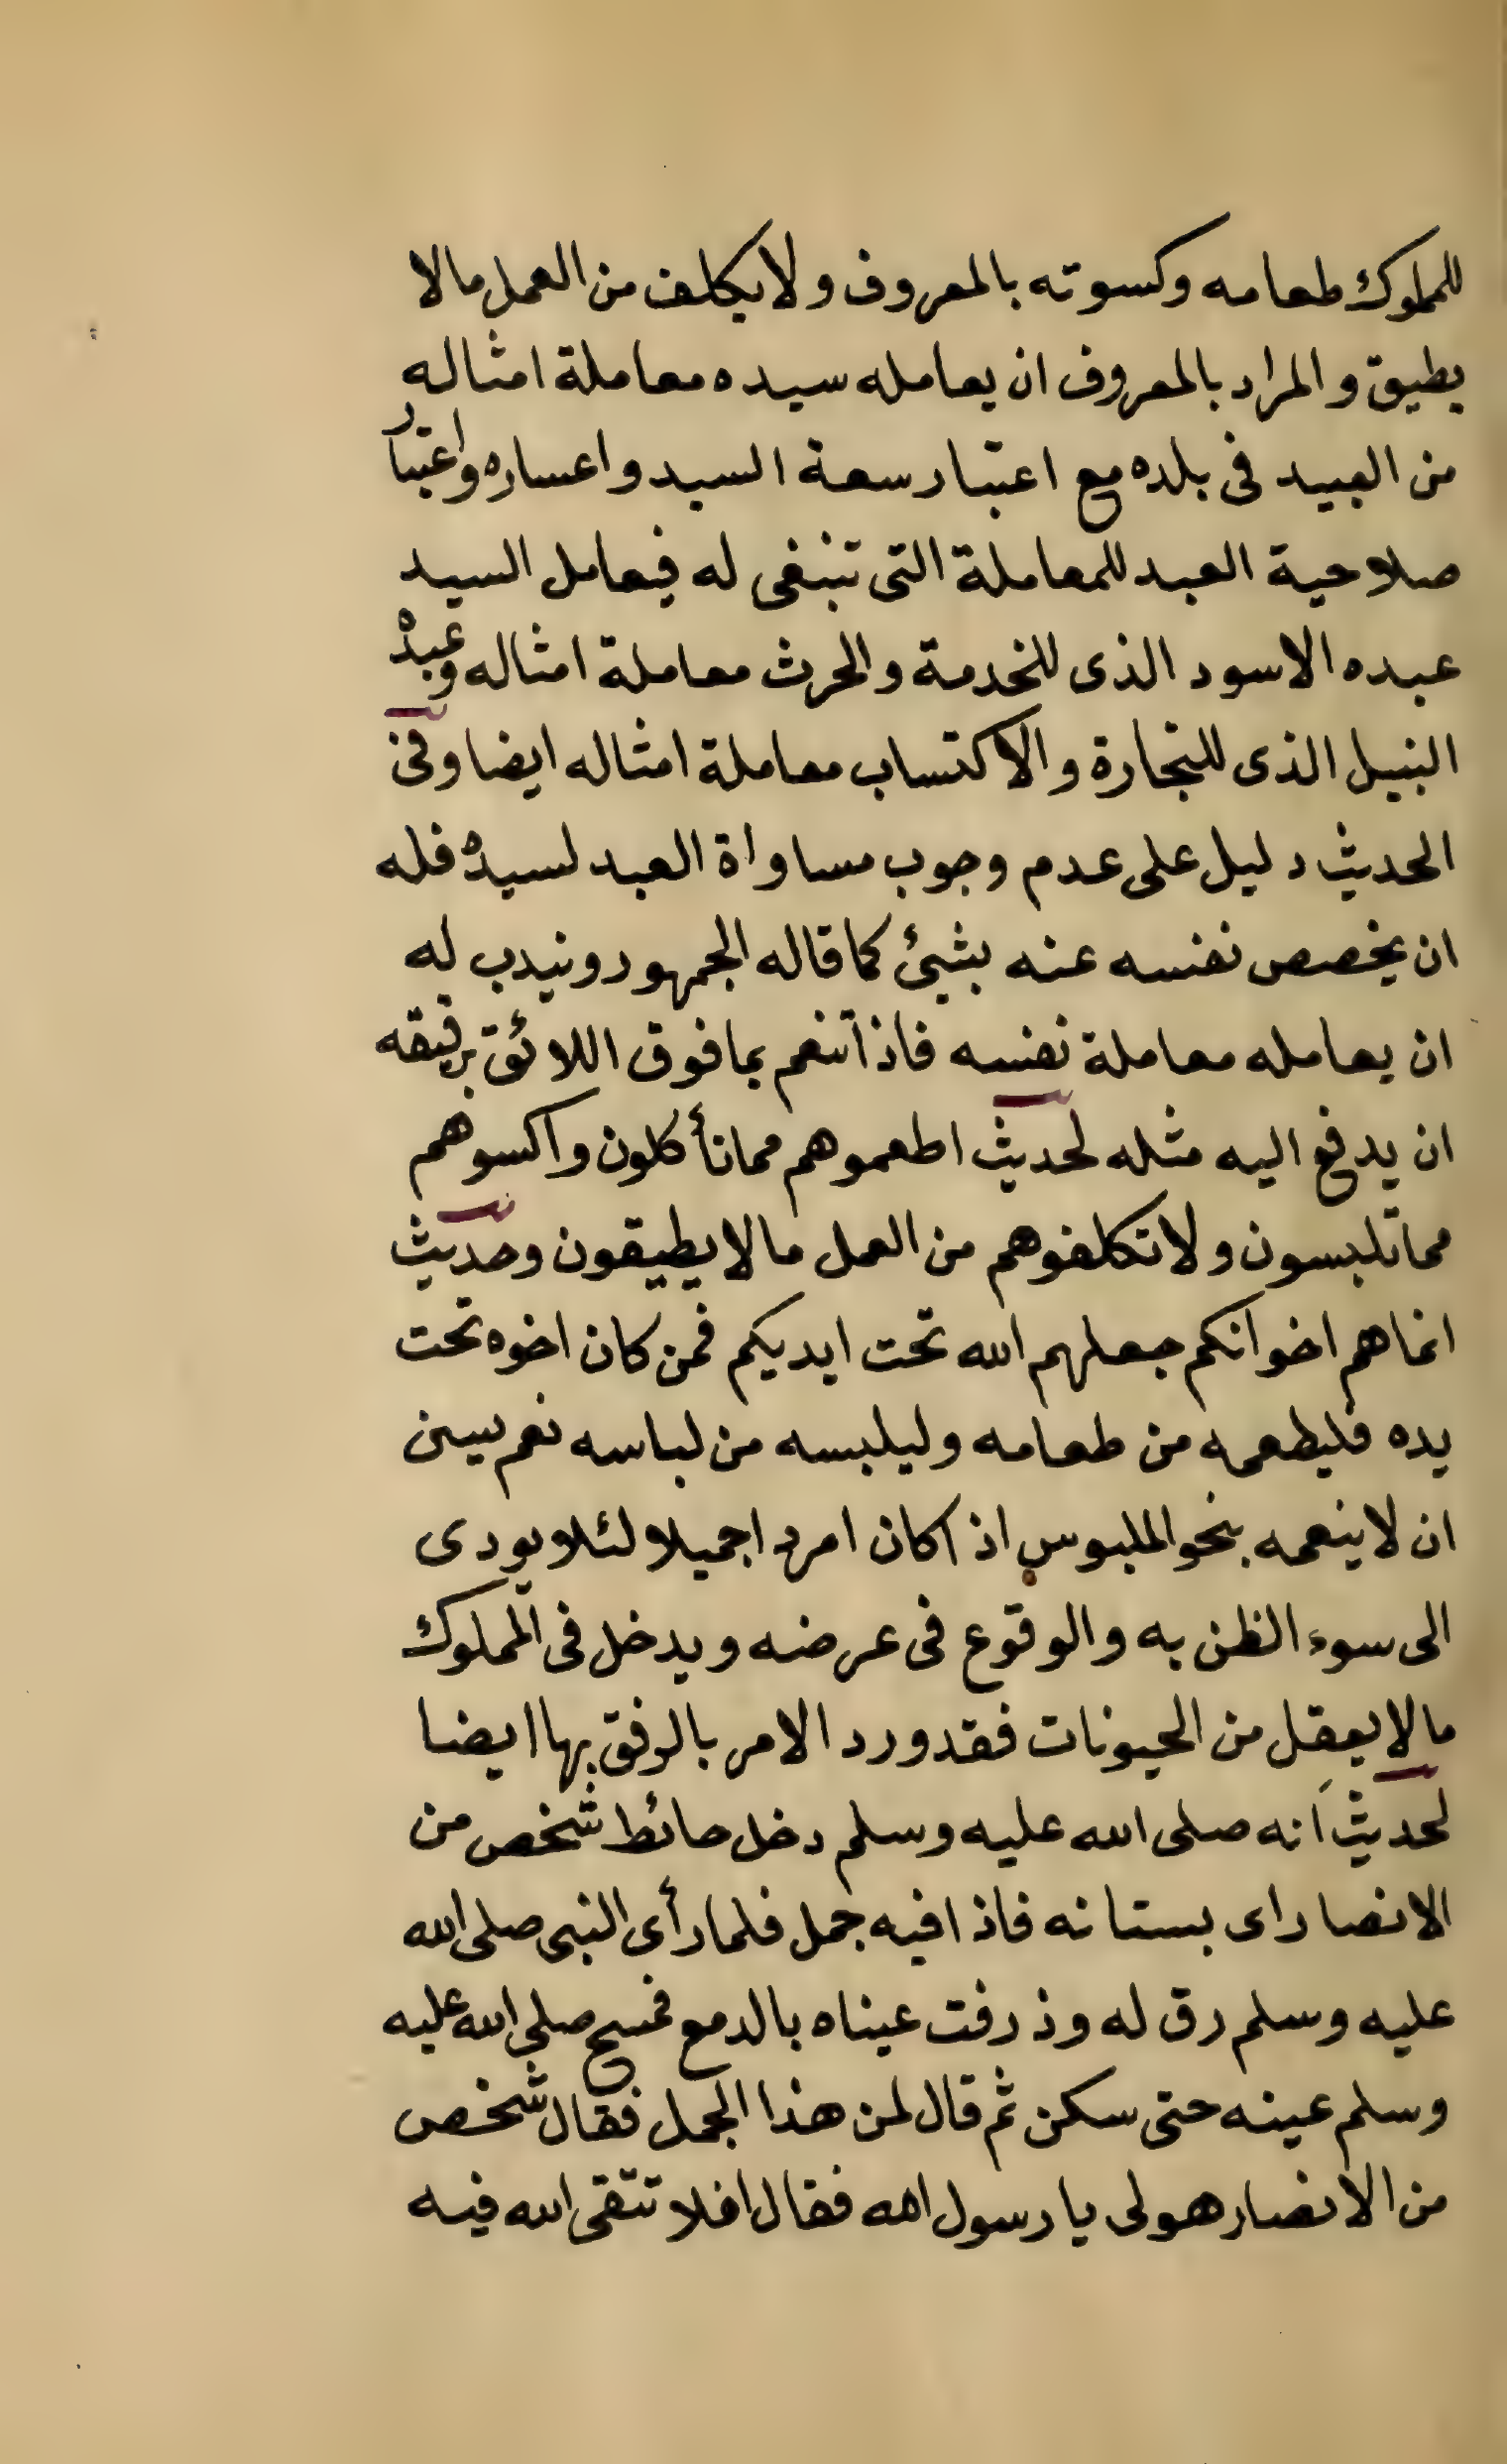 للمملوك طعامه وكسوته بالمعروف ولا يكلف من العمل مالا
يطيق والمراد بالمعروف ان يعامله سيده معاملة امثاله
من العبيد فى بلده مع اعتبار سعة السيد واعساره واعتبار
صلاحية العبد للمعاملة التى تنبغى له فيعامل السيد
عبده الاسود الذى للخدمة والحرث معاملة امثاله وعبده
النبيل الذى للتجارة والاكتساب معاملة امثاله ايضا وفى
الحديث دليل على عدم وجوب مساواة العبد لسيده فله
ان يخصص نفسه عنه بشيئ كما قاله الجمهور ونيدب له
ان يعامله معاملة نفسه فاذا تنعم بما فوق اللائق برقيقه
ان يدفع اليه مثله لحديث اطعموهم مما تأكلون واكسوهم
مما تلبسون ولا تكلفوهم من العمل مالا يطيقون وحديث
انما هم اخوانكم جعلهم الله تحت ايديكم فمن كان اخوه تحت
يده فليطعمه من طعامه وليلبسه من لباسه نعم يسن
ان لا ينعمه بنحو الملبوس اذا كان امردا جميلا لئلا يودى
الى سوء الظن به والوقوع فى عرضه ويدخل فى المملوك
مالا يعقل من الحيونات فقد ورد الامر بالرفق بها ايضا
لحديث انه صلى الله عليه وسلم دخل حائط شخص من
الانصار اى بستانه فاذا فيه جمل فلما رأى النبى صلى الله
عليه وسلم رق له وذرفت عيناه بالدمع فمسح صلى الله عليه
وسلم عينه حتى سكن ثم قال لمن هذا الجمل فقال شخص
من الانصار هو لى يا رسول الله فقال افلا تتقى الله فيه